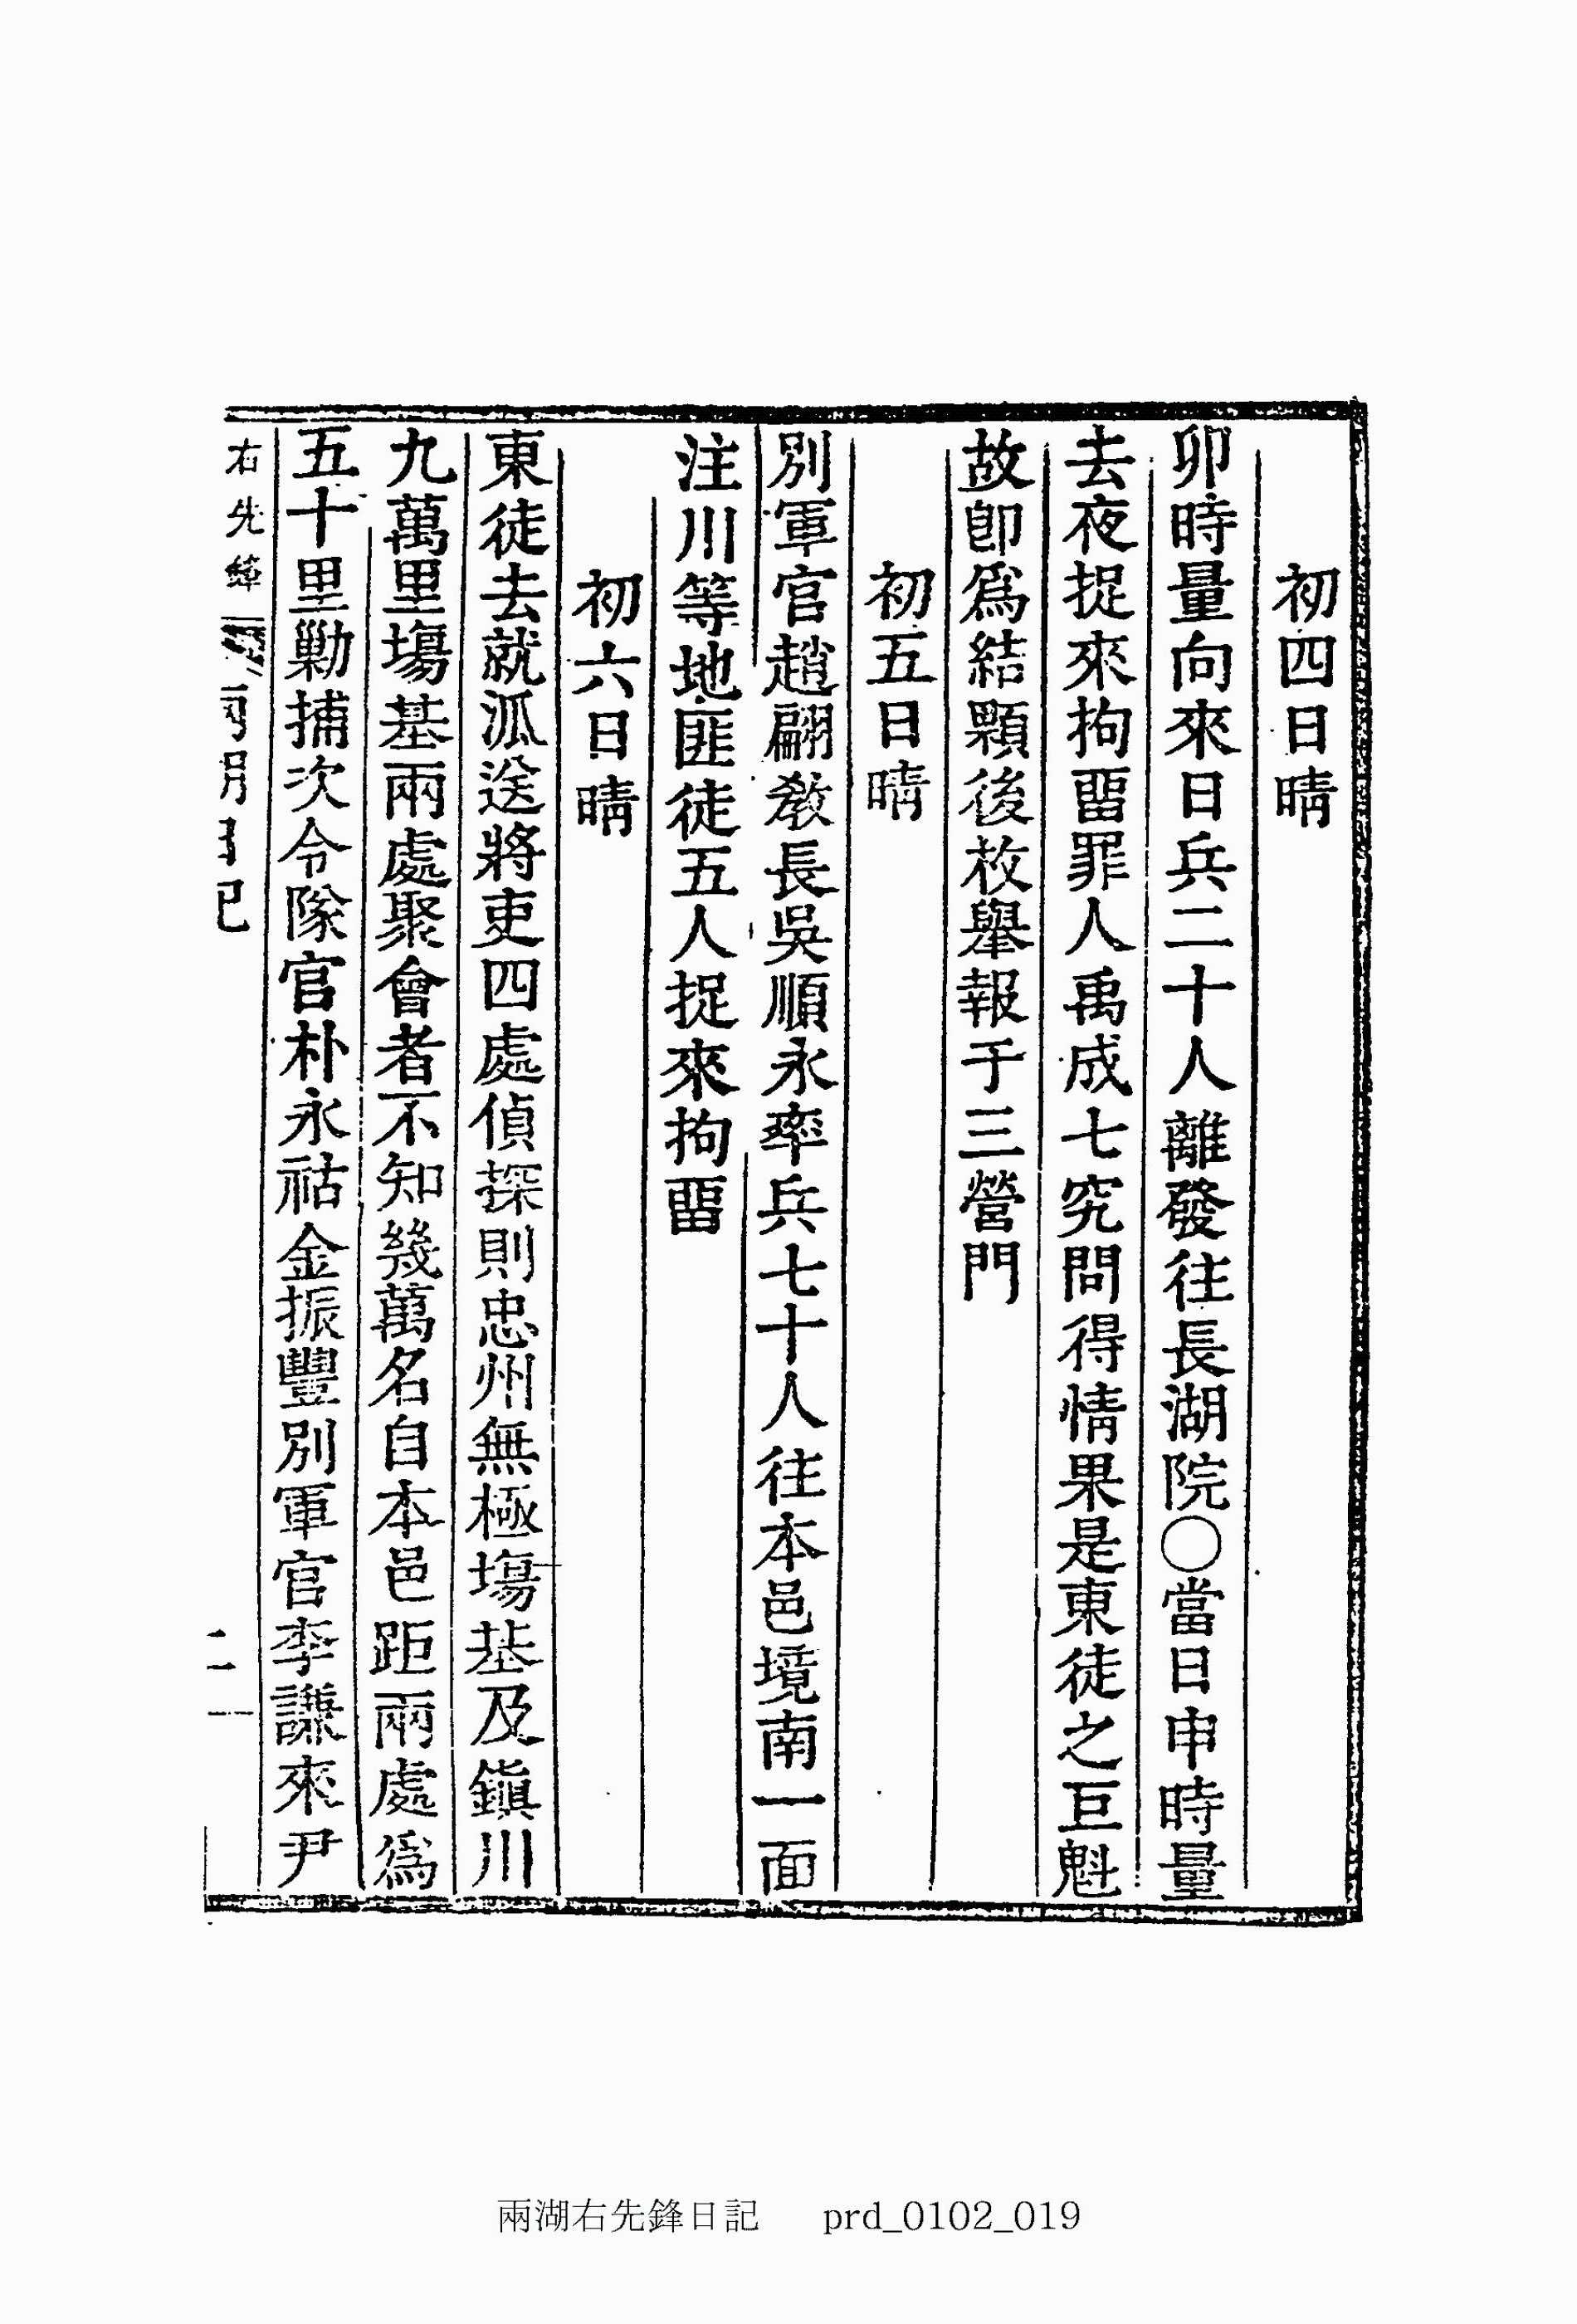 初四日晴
卯時量向來日兵二十人離發往長湖院○當日申時量
去夜捉來拘畱罪人禹成七究問得情果是東徒之巨魁
故卽爲結顆後枚擧報于三營門
初五日晴
別軍官趙翩敎長吳順永率兵七十人往本邑境南一面
注川等地匪徒五人捉來拘畱
初六日晴
東徒去就派送將吏四處偵探則忠州無極塲基及鎭川
九萬里塲基兩處聚會者不知幾萬名自本邑距兩處爲
五十里勦捕次令隊官朴永祜金振豐別軍官李謙來尹
右先鋒
兩湖右先鋒日記 prd_0102_019